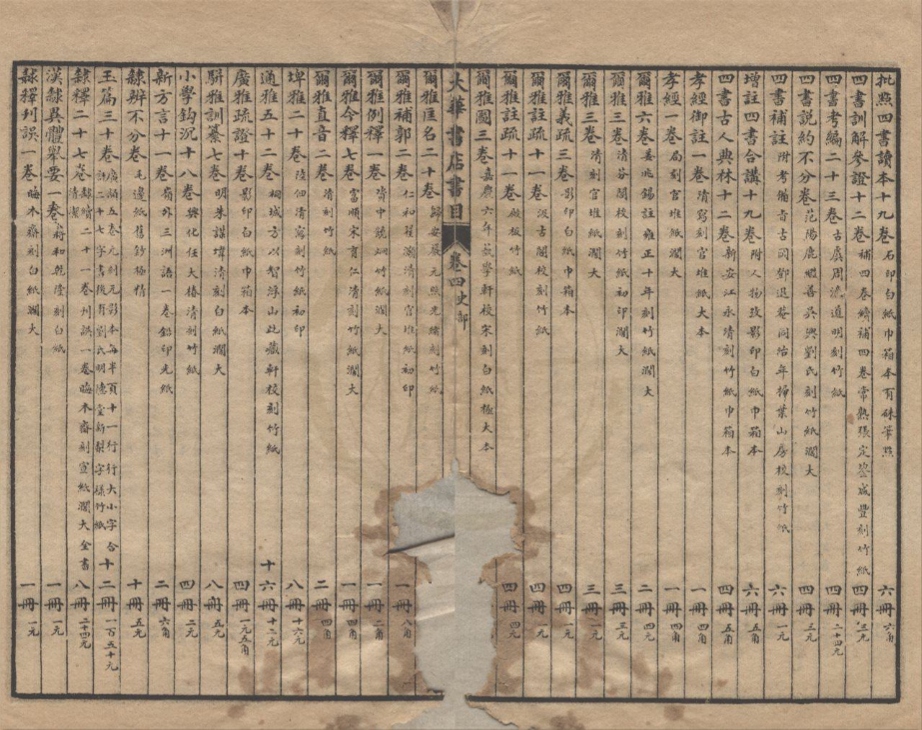 批點四書讀本十九卷 石印白紙巾箱本有硃筆點 六冊 六角
四書訓解參證十二卷 補四卷續補四卷常熟張定鋆咸豐刻竹紙 四冊 三元
四書考編二十三卷 古虞周 道明刻竹紙 四冊 二十四元
四書說約不分卷 范陽鹿繼善吳興劉氏刻竹紙濶大 四冊 三元
四書補註 附考備旨古岡鄧退菴同治年掃葉山房校刻竹紙 六冊 一元
增註四書合講十九卷 附人物攷影印白紙巾箱本 六冊 五角
四書古人典林十二卷 新安江永清刻竹紙巾箱本 四冊 五角
孝經御註一卷 清寫刻官堆紙大本 一冊 四角
孝經一卷 局刻官堆紙濶大 一冊 四角
爾雅六卷 姜兆錫註雍正十年刻竹紙濶大 二冊 四元
爾雅三卷 清谷園校刻竹紙初印濶大 三冊 三元
爾雅三卷 清刻官堆紙濶大 三冊 一元
爾雅義疏三卷 影印白紙巾箱本 四冊 一元
爾雅註疏十一卷 汲古閣校刻竹紙 四冊 一元
爾雅註疏十一卷 殿板竹紙 四冊 四元
爾雅圖三卷 嘉慶六年藝學軒校宋刻白紙極大本
大華書店書目 卷四史部
爾雅匡名二十卷 歸安嚴元照光緒刻竹紙
爾雅補郭二卷 仁和翟灝清刻官堆紙初印 一冊 八角
爾雅例釋一卷 資中 竹紙濶大 一冊 二角
爾雅今釋七卷 富順宋育仁清刻竹紙濶大 一冊 四角
爾雅直音二卷 清刻竹紙 二冊 四角
埤雅二十卷 陸佃清寫刻竹紙初印 八冊 十六元
通雅五十二卷 桐城方以智浮山此藏軒校刻竹紙 十六冊 十二元
廣雅疏證十卷 影印白紙巾箱本 四冊 一元五角
駢雅訓纂七卷 明朱謀㙔清刻白紙濶大 八冊 五元
小學鈎沉十八卷 興化任大椿清刻竹紙 四冊 二元
新方言十一卷 嶺外三洲語一卷鉛印光紙 二冊 六角
隸辨不分卷 毛邊紙舊鈔極精 十冊 五元
玉篇三十卷 廣韻五卷元刻元影本每半頁十一行行大小字合計二十七字書後有劉氏明德堂新梨字樣竹紙 十二冊 一百五十元
隸釋二十七卷 隸續二十一卷刊誤一卷晦木齋刻宣紙濶大全書清潔 八冊 二十四元
漢隸異體舉要一卷 蔣和乾隆刻白紙 一冊 一元
隸釋刊誤一卷 晦木齋刻白紙濶大 一冊 一元